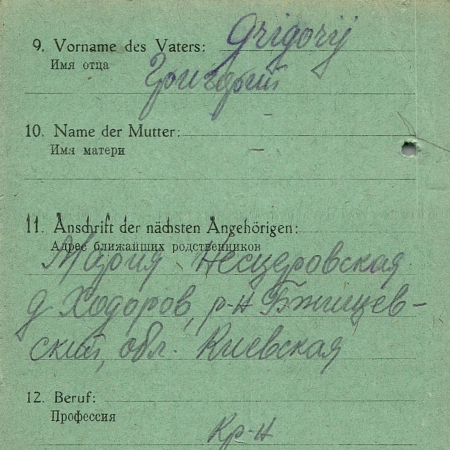 9. Vorname des Vaters: Grigorij
Имя отца
Григорий
10. Name der Mutter:
Имя матери –
11. Anschrift der nächsten Angehörigen:
Адрес ближайших родственников
Мария Несцеровская
д. Ходоров, р-н Бжищев-
ский, обл. Киевская
12. Beruf:
Профессия
Кр-н